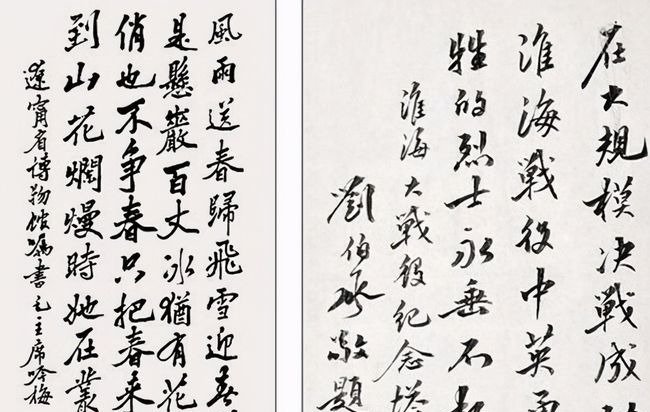 風雨送春歸飛雪迎春
是懸巖百丈冰猶有花
俏也不争春只把春来
到山花爛熳時她在叢
遼甯省博物馆嘱書毛主席咏梅
在大規模决戰成
淮海戰役中英勇
牲的烈士永垂不
淮海大戰役纪念塔
劉伯承敬題